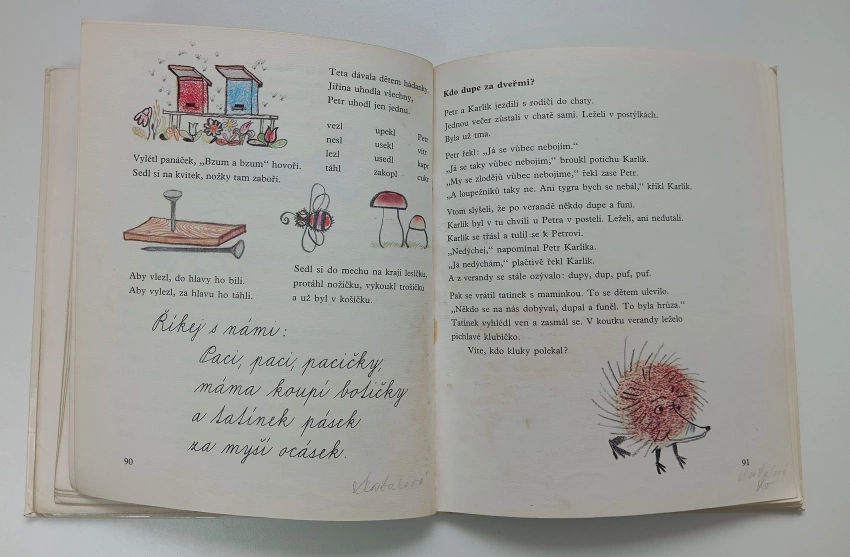 Teta dávala dětem hádanky.
Jiřina uhodla všechny,
Petr uhodl jen jednu.
vezl upekl Petr
nesl usekl vítr
lezl usedl kapr
táhl zakopl cukr
Vylétl panáček, „Bzum a bzum“ hovoří.
Sedl si na kvítek, nožky tam zaboří.
Aby vlezl, do hlavy ho bili.
Aby vylezl, za hlavu ho táhli.
Sedl si do mechu na kraji lesíčku,
protáhl nožičku, vykoukl trošičku
a už byl v košíčku.
Říkej s námi:
Paci, paci, pacičky,
máma koupí botičky
a tatínek pásek
za myší ocásek.
90
Kdo dupe za dveřmi?
Petr a Karlík jezdili s rodiči do chaty.
Jednou večer zůstali v chatě sami. Leželi v postýlkách.
Byla už tma.
Petr řekl: „Já se vůbec nebojím.“
„Já se taky vůbec nebojím,“ broukl potichu Karlík.
„My se zlodějů vůbec nebojíme,“ řekl zase Petr.
„A loupežníků taky ne. Ani tygra bych se nebál,“ křikl Karlík.
Vtom slyšeli, že po verandě někdo dupe a funí.
Karlík byl v tu chvíli u Petra v posteli. Leželi, ani nedutali.
Karlík se třásl a tulil se k Petrovi.
„Nedýchej,“ napomínal Petr Karlíka.
„Já nedýchám,“ plačtivě řekl Karlík.
A z verandy se stále ozývalo: dupy, dup, puf, puf.
Pak se vrátil tatínek s maminkou. To se dětem ulevilo.
„Někdo se na nás dobýval, dupal a funěl. To byla hrůza.“
Tatínek vyhlédl ven a zasmál se. V koutku verandy leželo
pichlavé klubíčko.
Víte, kdo kluky polekal?
91